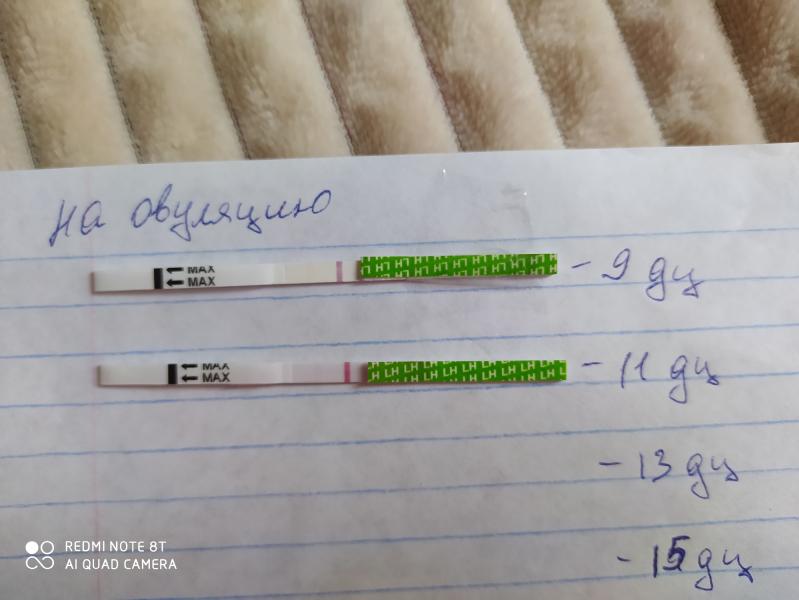 на овуляцию
MAX
MAX
LH LH LH LH LH LH LH - 9 дц
MAX
MAX
LH LH LH LH LH LH LH - 11 дц
- 13 дц
- 15 дц
REDMI NOTE 8T
AI QUAD CAMERA